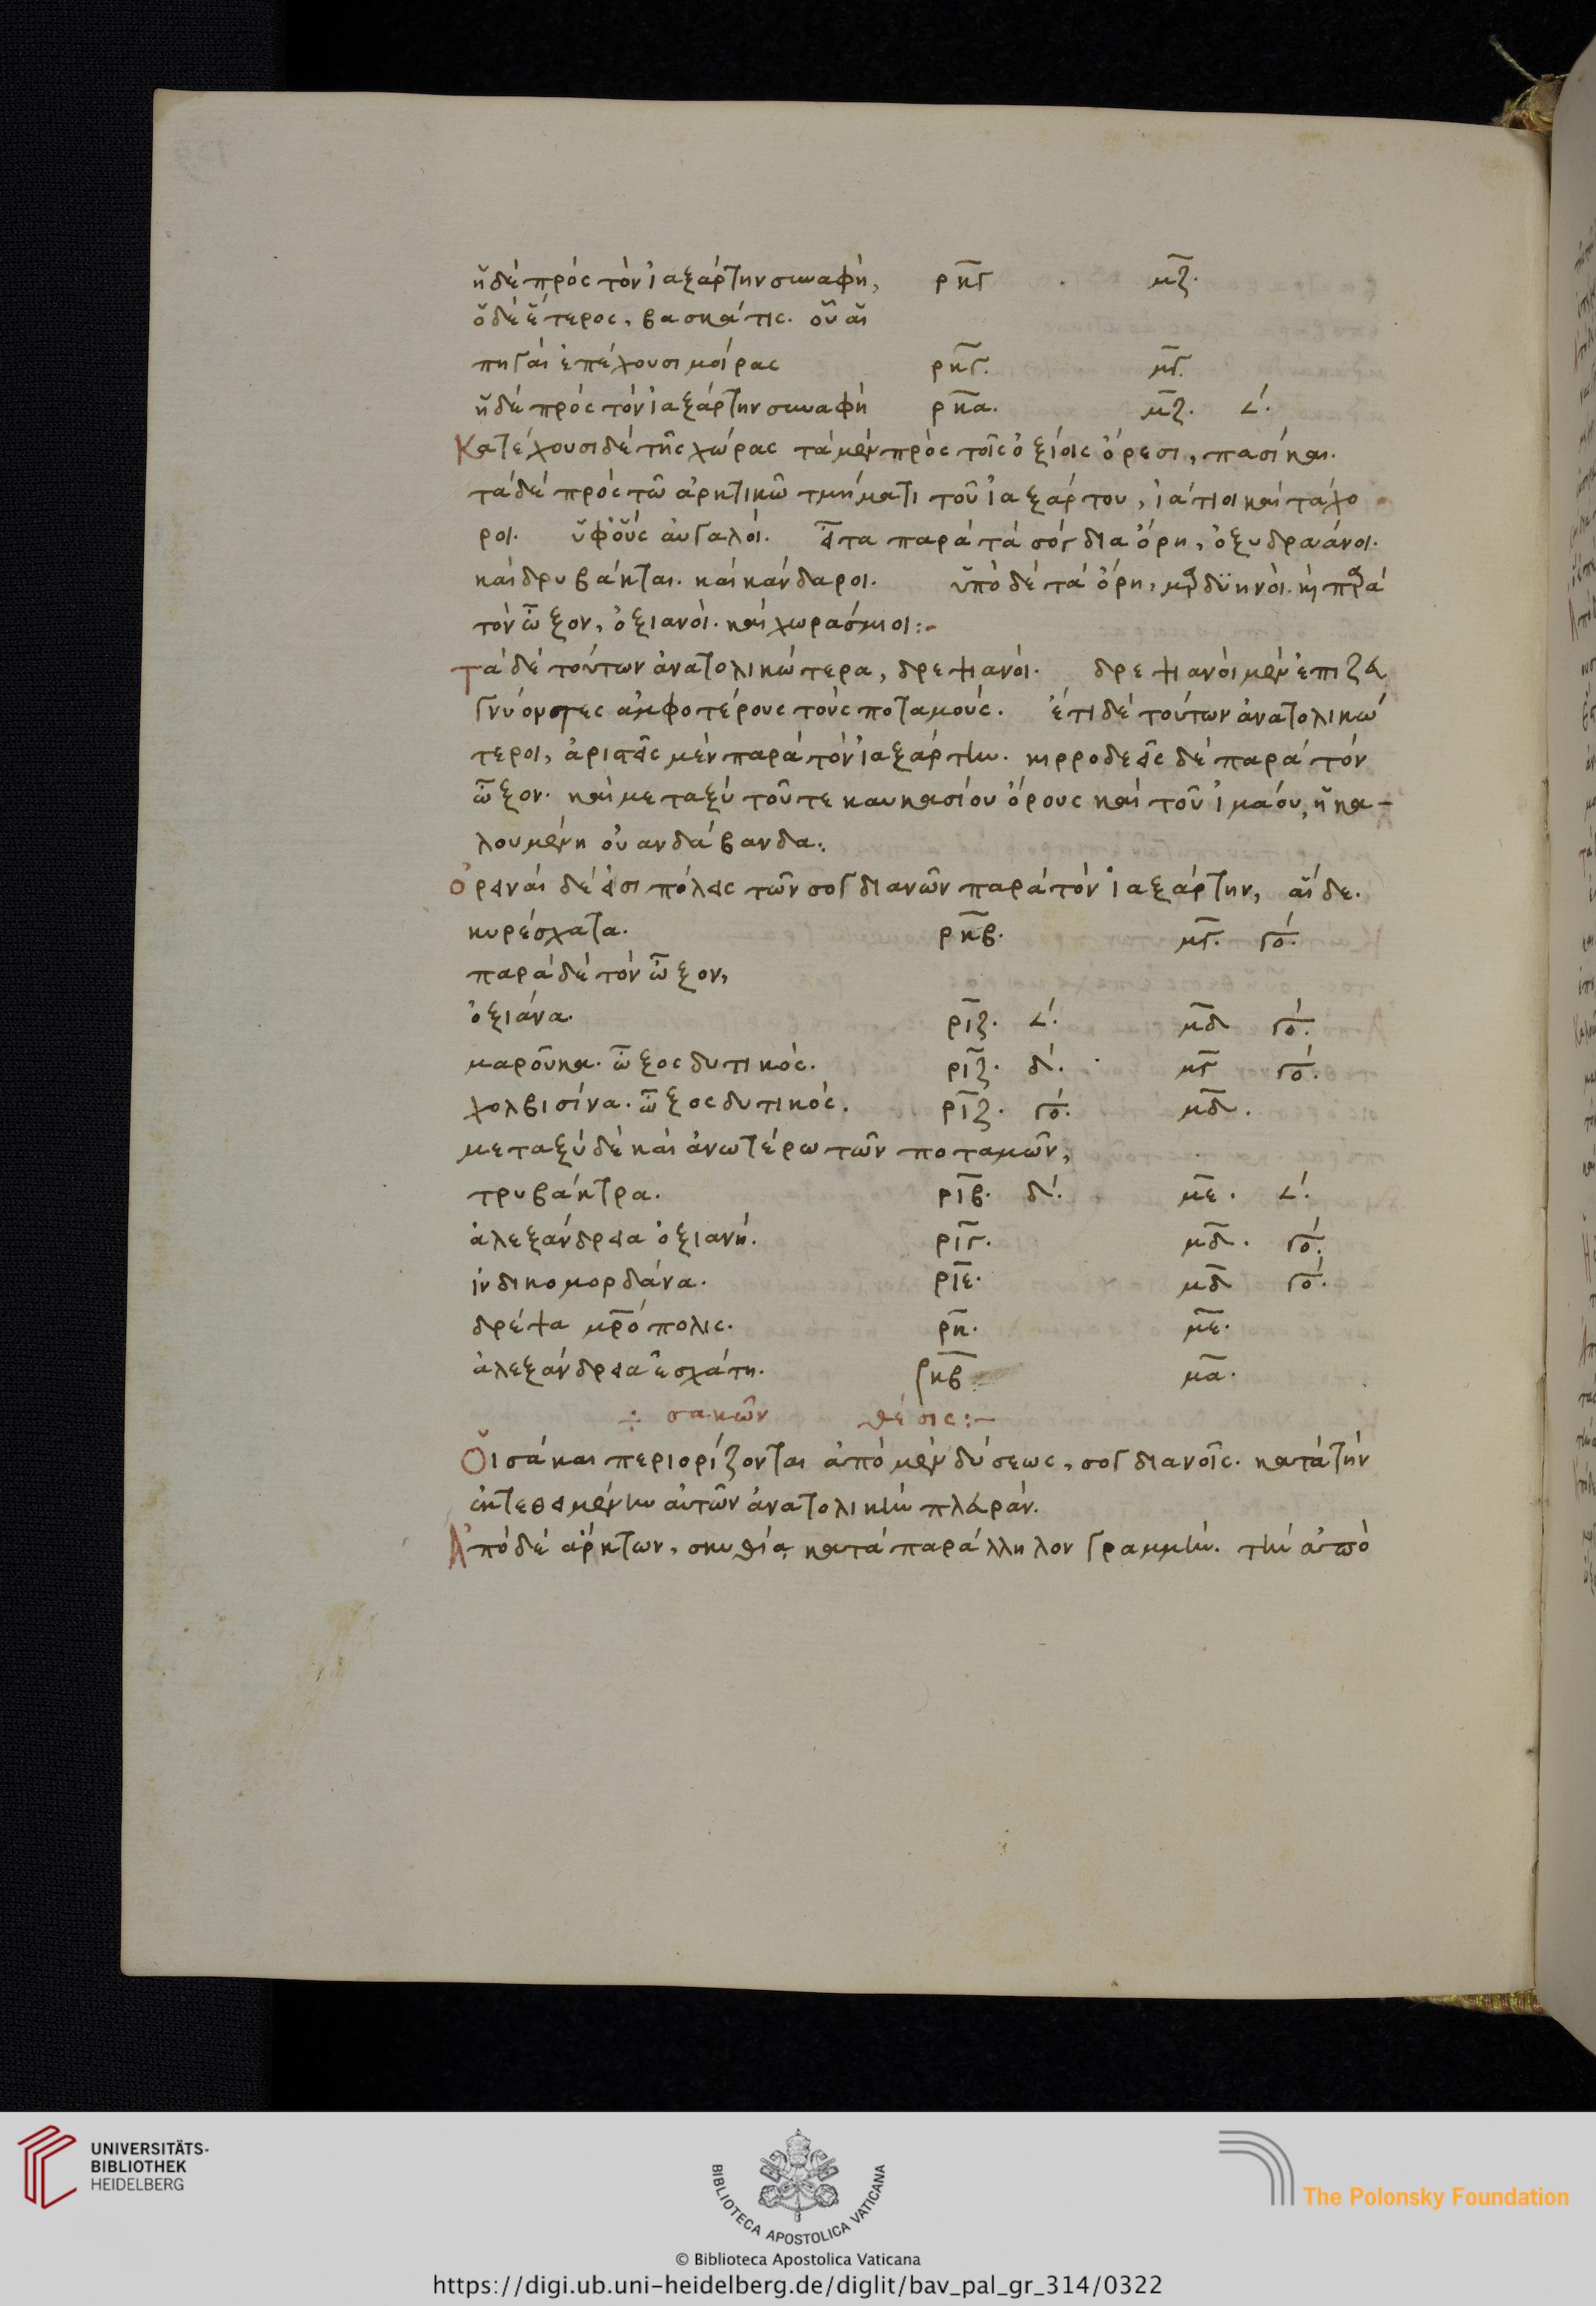 ἡ δὲ πρὸς τὸν ἰαξάρτην συναφή, ρκγ μζ.
ὁ δὲ ἕτερος, βασκάτις. οὗ αἱ
πηγαὶ ἐπέχουσι μοίρας ρκγ. μγ.
ἡ δὲ πρὸς τὸν ἰαξάρτην συναφὴ ρκα. μζ. 𐅵.
Κατέχουσι δὲ τῆς χώρας τὰ μὲν πρὸς τοῖς ὀξίοις ὄρεσι, πασίκαι.
τὰ δὲ πρὸς τῶ ἀρκτικῶ τμήματι τοῦ ἰαξάρτου, ἰάτιοι καὶ τάχο
ροι. ὑφ' οὓς αὐγαλοί. εἶτα παρὰ τὰ σόγδια ὄρη, ὀξυδραάνοι.
καὶ δρυβάκται. καὶ κάνδαροι. ὑπὸ δὲ τὰ ὄρη, μαρδυηνοὶ. κ παρὰ
τὸν ὦξον, ὀξιανοὶ. καὶ χωράσμιοι:-
τὰ δὲ τούτων ἀνατολικώτερα, δρεψιανοὶ. δρεψιανοὶ μὲν ἐπιζευ
γνύοντες ἀμφοτέρους τοὺς ποταμούς. ἔτι δὲ τούτων ἀνατολικώ
τεροι, ἀριστεῖς μὲν παρὰ τὸν ἰαξάρτην. κιρροδεεῖς δὲ παρὰ τὸν
ὦξον. καὶ μεταξὺ τοῦ τε καυκασίου ὄρους καὶ τοῦ ἰμάου, ἡ κα-
λουμένη οὐανδάβανδα:
ὀρειναὶ δέ εἰσι πόλεις τῶν σογδιανῶν παρὰ τὸν ἰαξάρτην, αἵδε.
κυρέσχατα. ρκβ. μγ. γο.
παρὰ δὲ τὸν ὦξον,
ὀξιάνα. ριζ. 𐅵. μδ γο.
μαροῦκα. ὦξος δυτικός. ριζ. δ. μγ γο.
χολβισίνα. ὦξος δυτικός. ριζ. γο. μδ.
μεταξὺ δὲ καὶ ἀνωτέρω τῶν ποταμῶν,
τρυβάκτρα. ριβ. δ. με. 𐅵.
ἀλεξάνδρεια ὀξιανή. ριγ. μδ. γο.
ἰνδικομορδάνα. ριε. μδ γο.
δρέψα μρόπολις. ρκ. με.
ἀλεξάνδρεια ἐσχάτη. ρκβ μα.
÷ σακῶν θέσις:-
Οἱ σάκαι περιορίζονται ἀπὸ μὲν δύσεως, σογδιανοῖς. κατὰ τὴν
ἐκτεθειμένην αὐτῶν ἀνατολικὴν πλευράν.
Ἀπὸ δὲ ἄρκτων, σκυθίᾳ κατὰ παράλληλον γραμμὴν. τὴν ἀπὸ
UNIVERSITÄTS-
BIBLIOTHEK
HEIDELBERG
BIBLIOTECA APOSTOLICA VATICANA
The Polonsky Foundation
© Biblioteca Apostolica Vaticana
https://digi.ub.uni-heidelberg.de/diglit/bav_pal_gr_314/0322